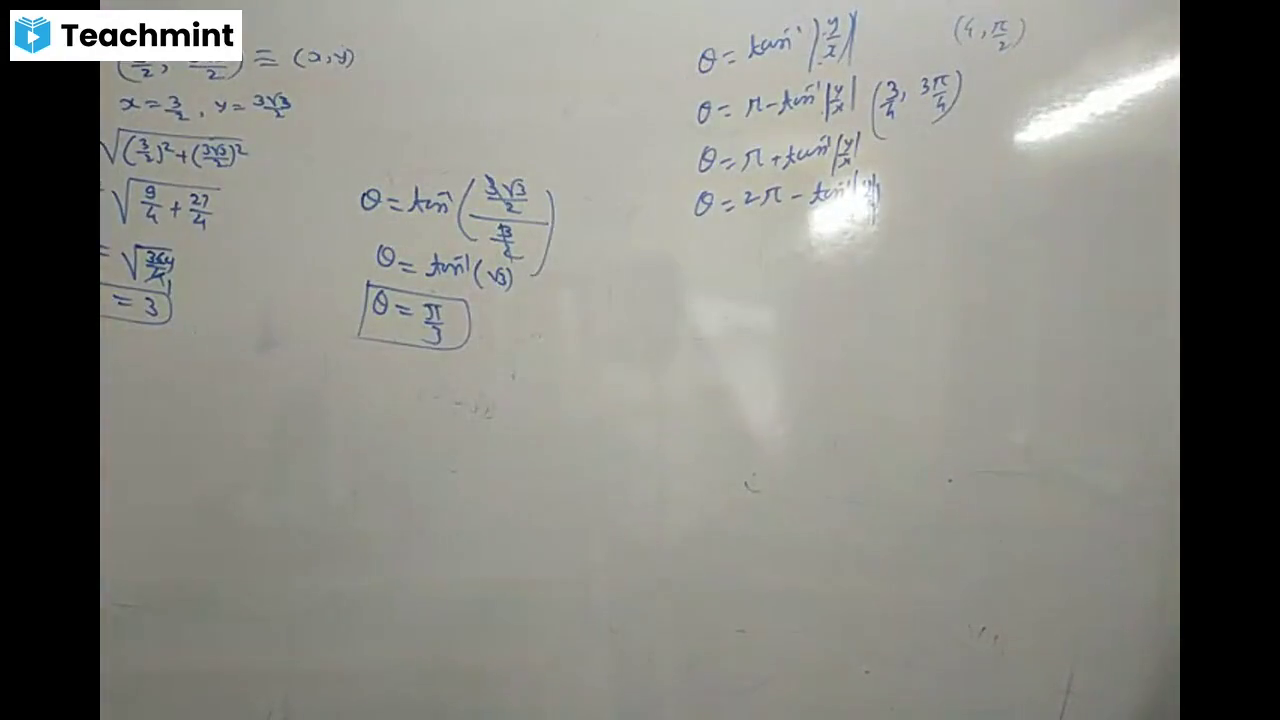 Teachmint
≡ (x,y)
x = 3/2 , y = 3√3/2
√((3/2)² + (3√3/2)²)
= √(9/4 + 27/4)
= √(36/4)
= 3
θ = tan⁻¹((3√3/2)/(3/2))
θ = tan⁻¹(√3)
θ = π/3
θ = tan⁻¹|y/x|
(4, π/2)
θ = π - tan⁻¹|y/x| (3/4, 3π/4)
θ = π + tan⁻¹|y/x|
θ = 2π - tan⁻¹|y/x|